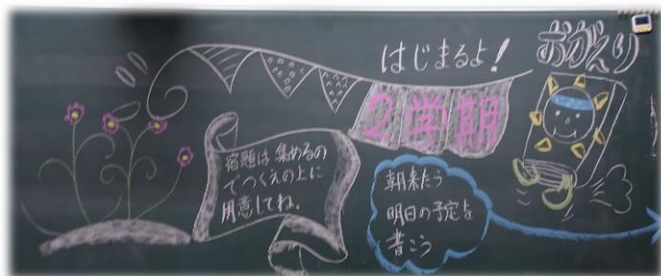 はじまるよ!
おかえり
2学期
宿題は集めるの
でつくえの上に
用意してね。
朝来たら
明日の予定を
書こう